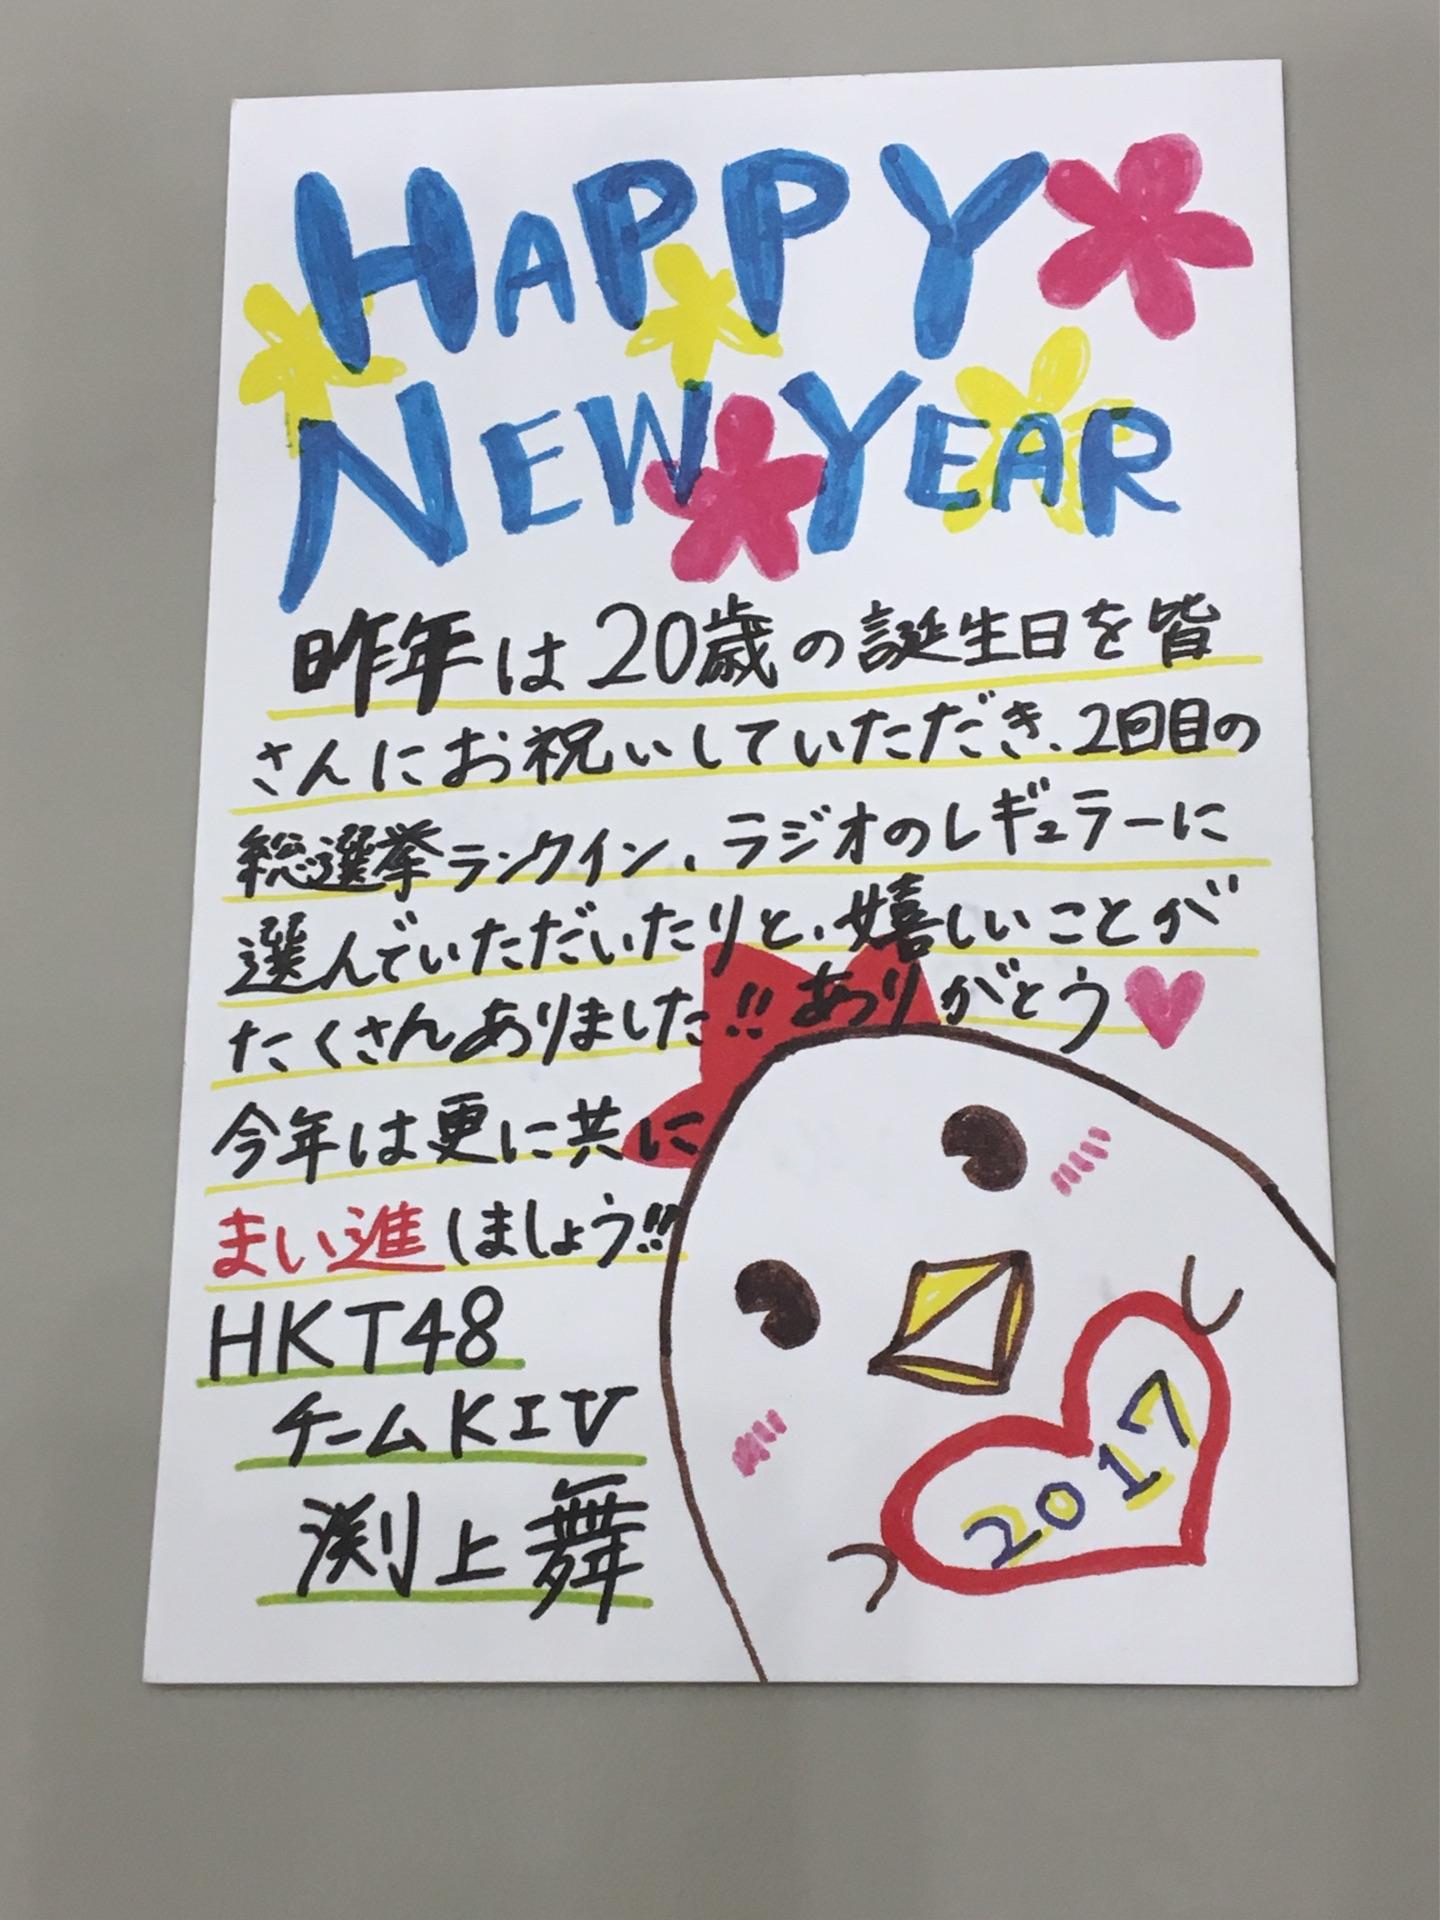 HAPPY
NEW YEAR
昨年は20歳の誕生日を皆
さんにお祝いしていただき、2回目の
総選挙ランクイン、ラジオのレギュラーに
選んでいただいたりと、嬉しいことが
たくさんありました!! ありがとう
今年は更に共に
まい進しましょう!!
HKT48
チームKIV
渕上舞
2017